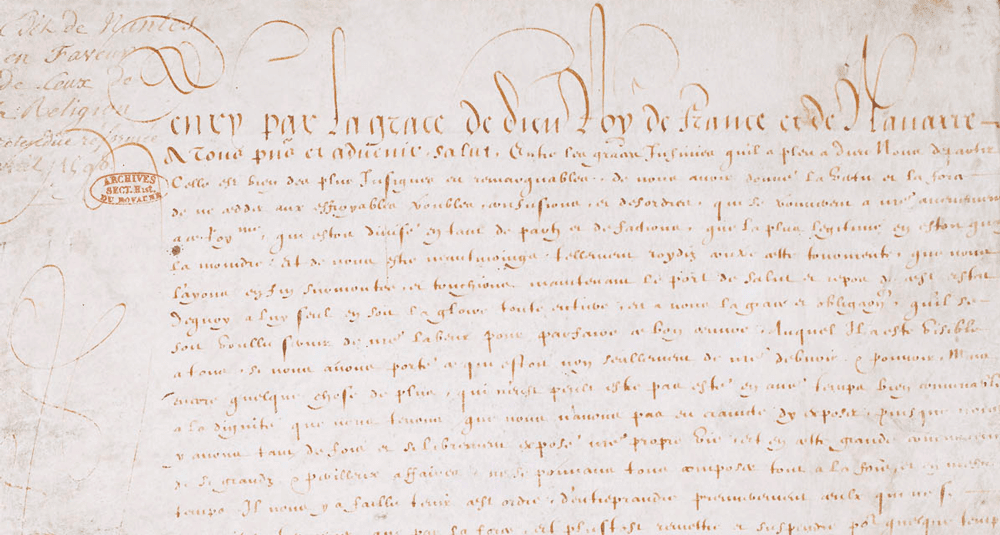 Edit de Nantes
en Faveur
de Ceux de
la Religion
ARCHIVES
SECT. Hist.
DU ROYAUME
Henry par la grace de dieu Roy de France et de Navarre
A tous pns et advenir salut, Entre les graces Infinies quil a pleu a dieu Nous departir
Celle est bien des plus Insignes et remarquables, de nous avoir donné la vertu et la force
de ne ceder aux effroyables troubles confusions et desordres qui se trouverent a nre advenement
a ce Roy^me, qui estoit divisé en tant de partz et de factions, que la plus legitime en estoit quasi
la moindre, Et de nous estre neantmoings tellement roydiz contre ceste tourmente, que nous
l'ayons en fin surmontée, et touchions maintenant le port de salut et repos de cest estat
Dequoy a luy seul en soit la gloire toute entiere, et a nous la grace et obligation, quil se
soit voullu servir de nre labeur pour parfaire ce bon oeuvre, Auquel Il a esté visible
a tous, si nous avons porté ce qui estoit non seullement de nre debvoir, & pouvoir, Mais
encore quelque chose de plus, qui neust peult estre pas esté en autre temps bien convenable
a la dignité que nous tenons, que nous n'avons pas eu craincte dy exposer, puis que nous
y avons tant de fois et si librement exposé nre propre vie, Et en ceste grande concurrence
de si grandz & perilleux affaires ne se pouvans tous composer tout a la fois, et en mesme
temps Il nous y a fallu tenir cest ordre, d'entreprandre premierement ceulx qui ne se
que par la force, et plustost remettre et suspendre pour quelque temps